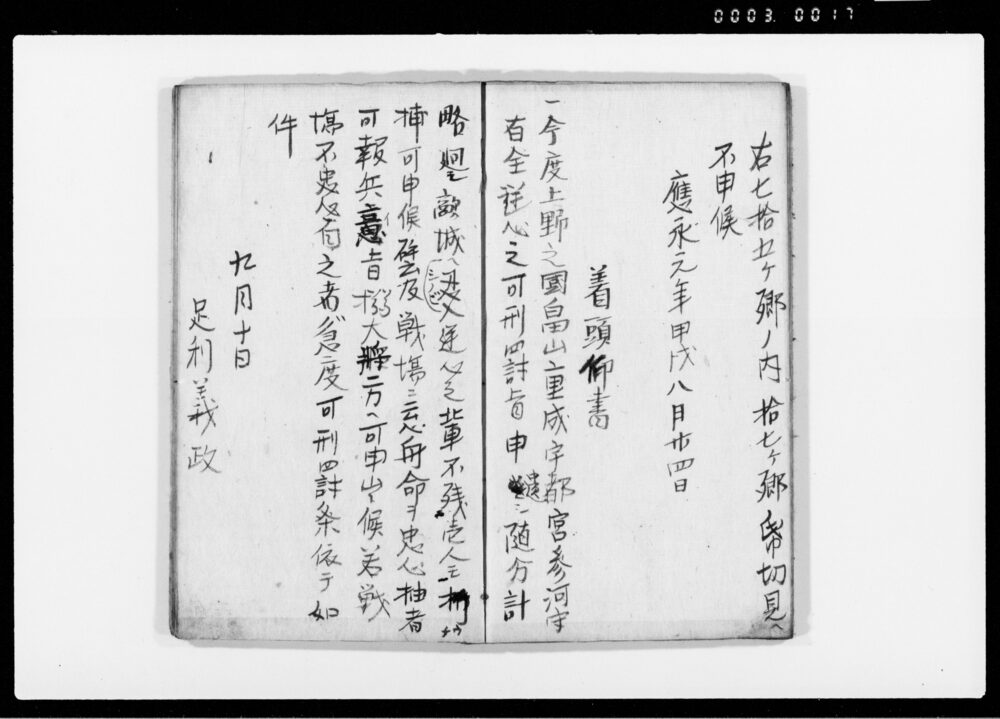 0003.0017
右七拾五ケ郷ノ内拾七ケ郷 切見へ
不申候
應永元年甲戌八月廿四日
着頭仰書
一今度上野之國畠山重成宇都宮参河守
有全逆心之可刑四討旨申遣ニ随分計
略廻シ敵城へ 逆心之輩不残壱人モ
捕可申候 戦場ニ 命ヲ忠心抽者
可報兵意旨 大将二方へ可申出候若戦
場不忠心有之者急度可刑四討条依テ如
件
九月十日
足利義政